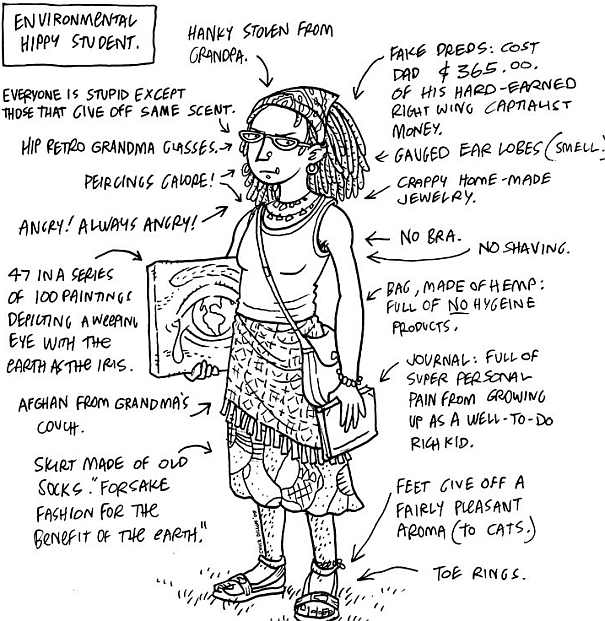 ENVIRONMENTAL
HIPPY STUDENT.
HANKY STOLEN FROM
GRANDPA.
FAKE DREDS: COST
DAD $365.00.
OF HIS HARD-EARNED
RIGHT WING CAPTIALIST
MONEY.
EVERYONE IS STUPID EXCEPT
THOSE THAT GIVE OFF SAME SCENT.
HIP RETRO GRANDMA GLASSES.
GAUGED EAR LOBES (SMELL.)
PEIRCINGS GALORE!
CRAPPY HOME-MADE
JEWELRY.
ANGRY! ALWAYS ANGRY!
NO BRA.
NO SHAVING.
47 IN A SERIES
OF 100 PAINTINGS
DEPICTING A WEEPING
EYE WITH THE
EARTH AS THE IRIS.
BAG, MADE OF HEMP:
FULL OF NO HYGEINE
PRODUCTS.
JOURNAL: FULL OF
SUPER PERSONAL
PAIN FROM GROWING
UP AS A WELL-TO-DO
RICH KID.
AFGHAN FROM GRANDMA'S
COUCH.
SKIRT MADE OF OLD
SOCKS. "FORSAKE
FASHION FOR THE
BENEFIT OF THE EARTH."
FEET GIVE OFF A
FAIRLY PLEASANT
AROMA (TO CATS.)
TOE RINGS.